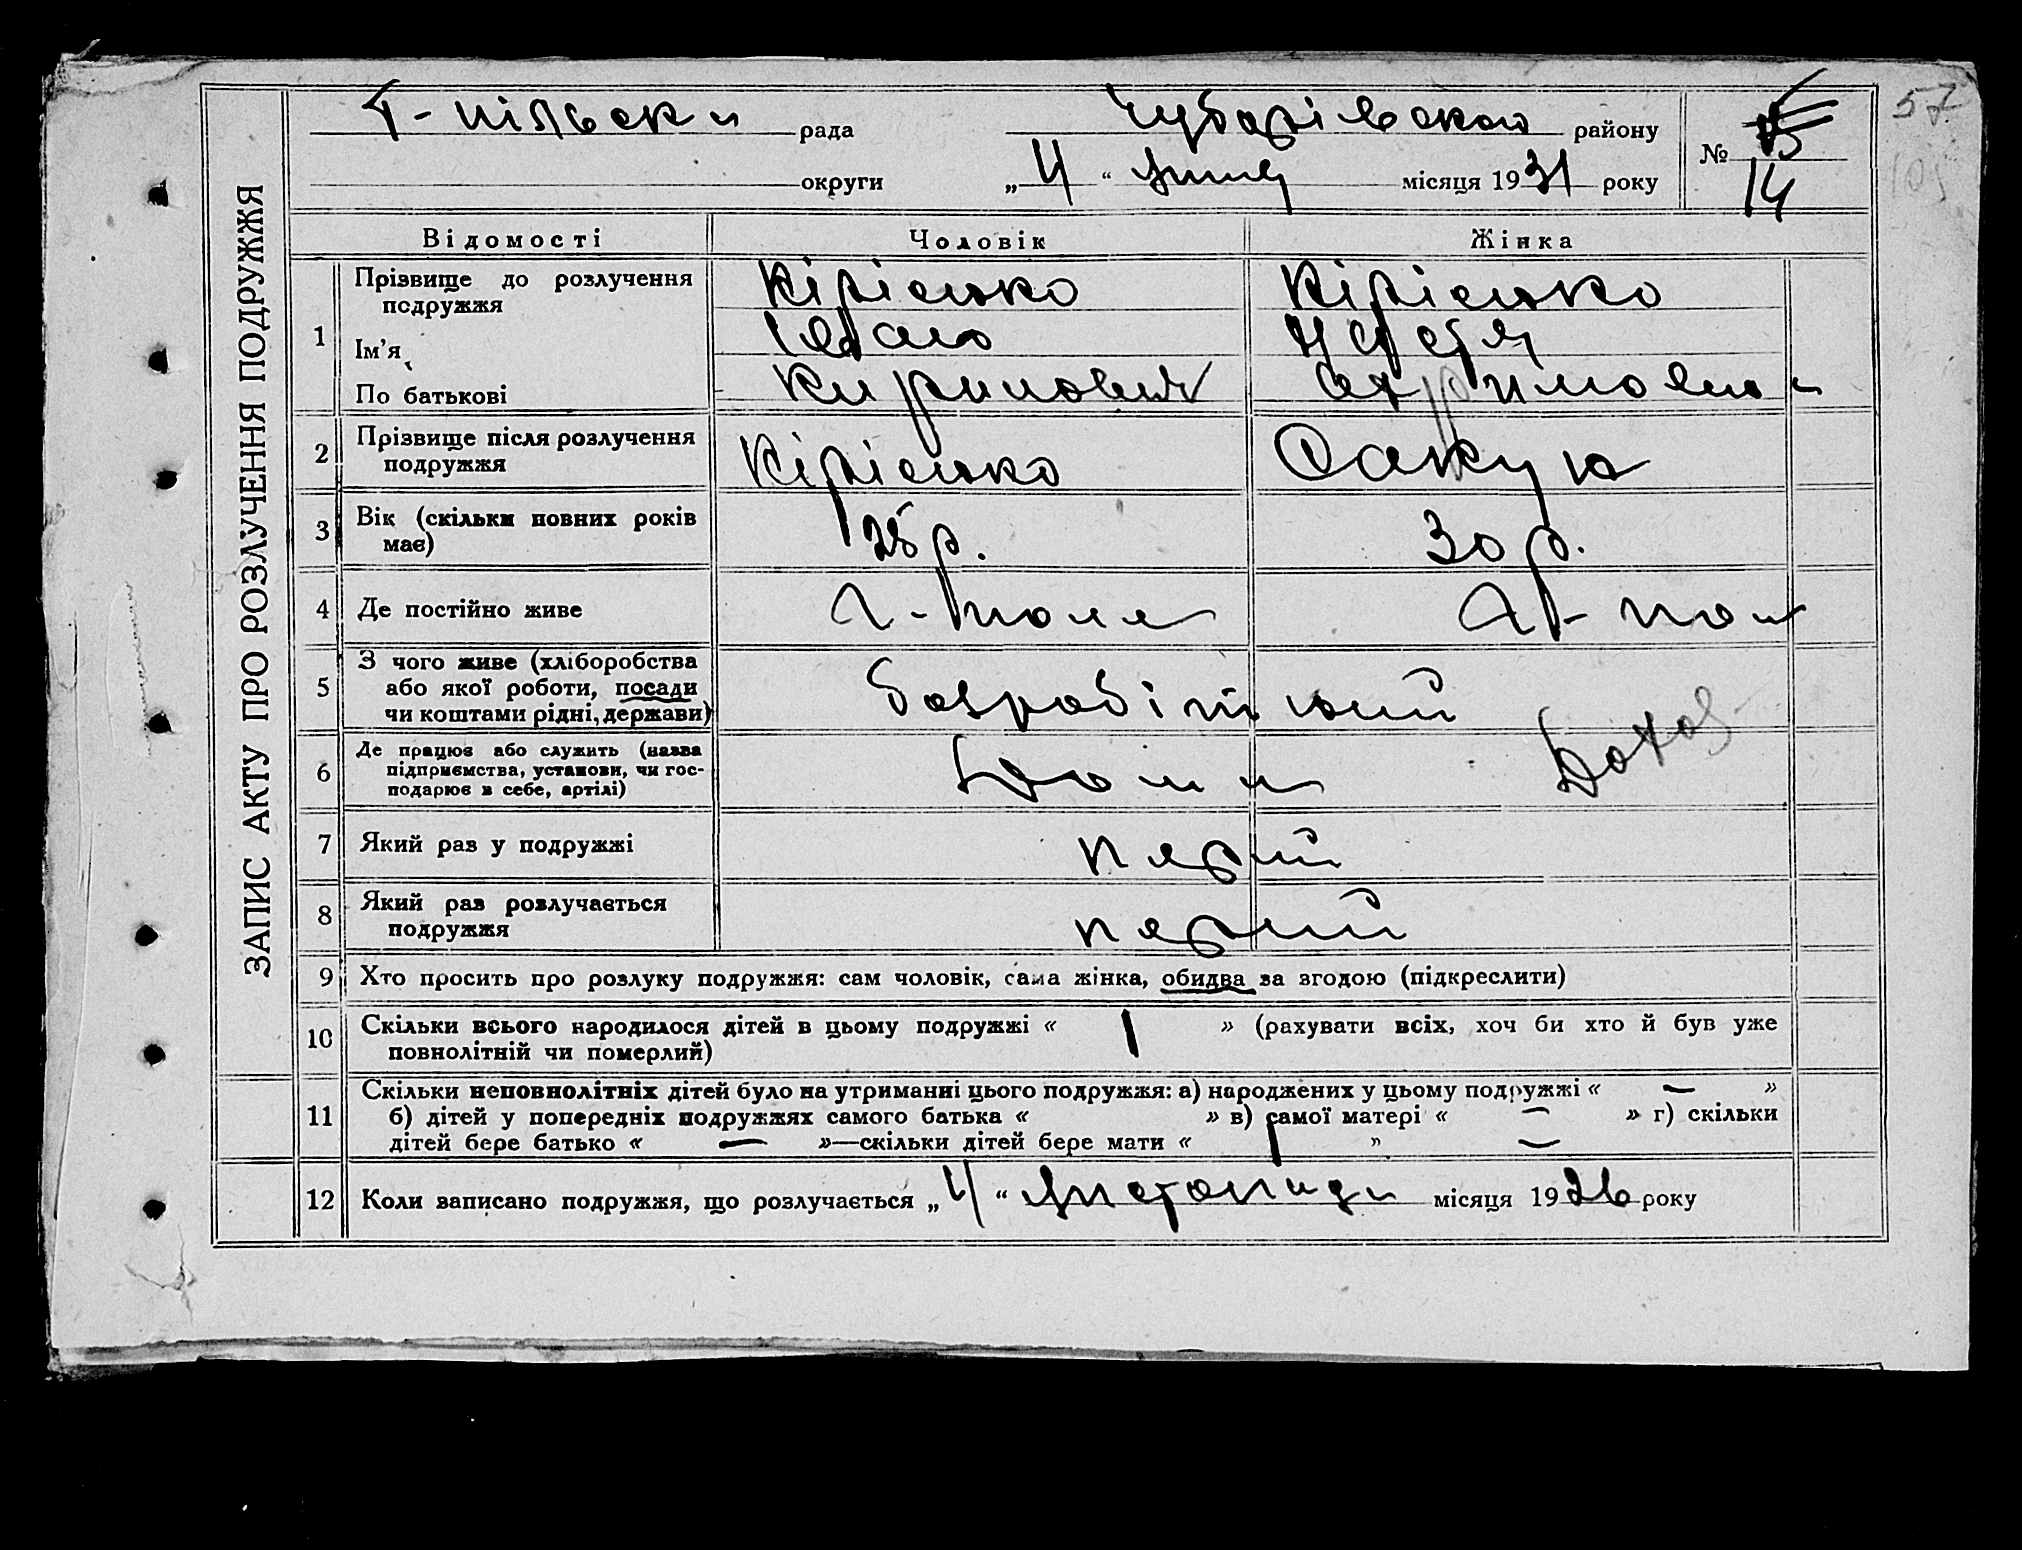 ЗАПИС АКТУ ПРО РОЗЛУЧЕННЯ ПОДРУЖЖЯ
Г-пільськ рада Чубарівського району № 14
57
округи „4“ липця місяця 1931 року
Відомості Чоловік Жінка
1 Прізвище до розлучення подружжя Кірієнко Кірієнко
Ім'я Іван Настя
По батькові
2 Прізвище після розлучення подружжя Кірієнко
3 Вік (скільки повних років має) 28 р. 30 р.
4 Де постійно живе Г-поле Г-поле
5 З чого живе (хліборобства
або якої роботи, посади
чи коштами рідні, держави)
6 Де працює або служить (назва
підприємства, установи, чи гос-
подарює в себе, артілі) Дома
7 Який раз у подружжі перший
8 Який раз розлучається
подружжя перший
9 Хто просить про розлуку подружжя: сам чоловік, сама жінка, обидва за згодою (підкреслити)
10 Скільки всього народилося дітей в цьому подружжі « 1 » (рахувати всіх, хоч би хто й був уже
повнолітній чи померлий)
11 Скільки неповнолітніх дітей було на утриманні цього подружжя: а) народжених у цьому подружжі « — »
б) дітей у попередніх подружжях самого батька « » в) самої матері « — » г) скільки
дітей бере батько « — »—скільки дітей бере мати « 1 » —
12 Коли записано подружжя, що розлучається „4“ листопада місяця 1926 року